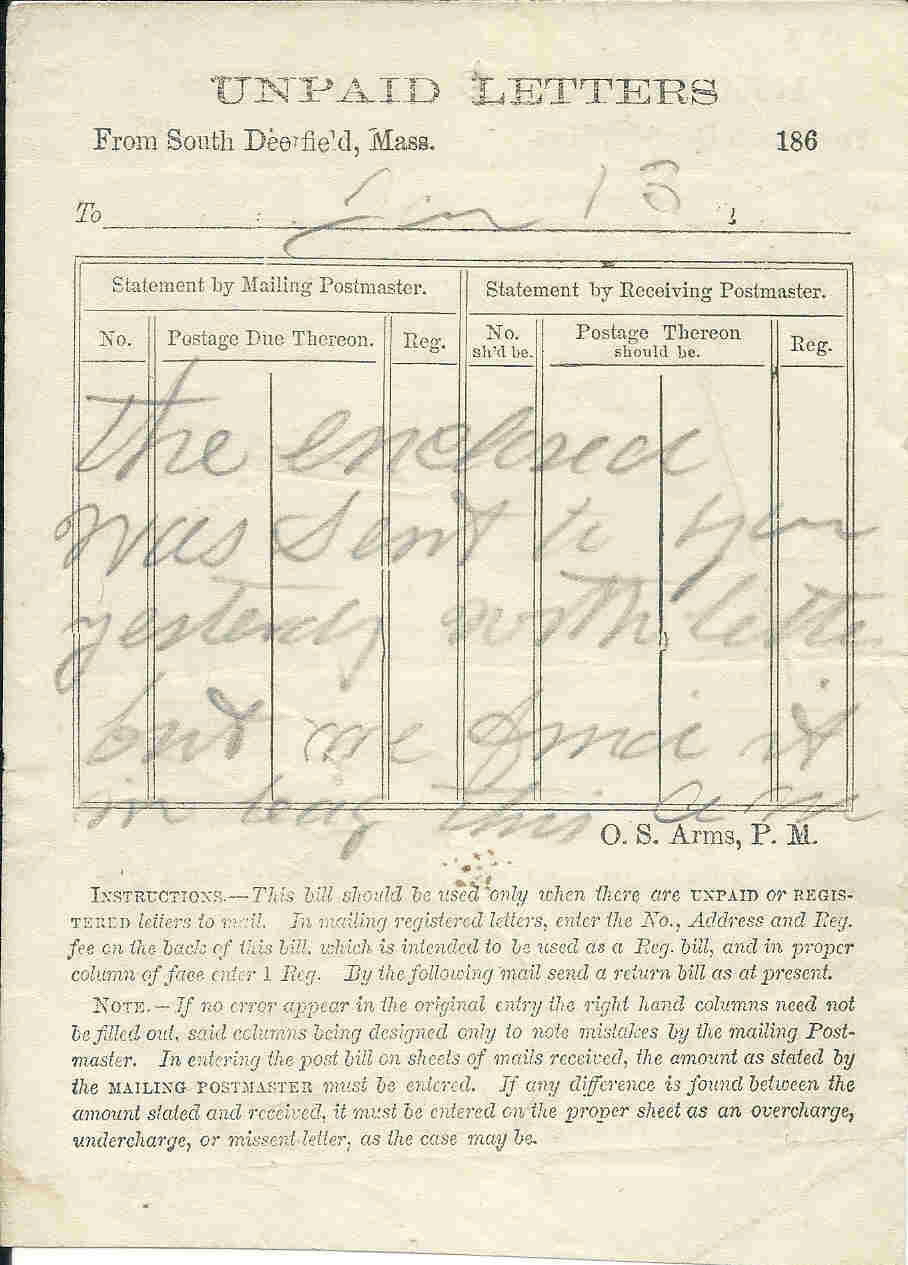 UNPAID LETTERS
From South Deerfield, Mass. 186
To 13
Statement by Mailing Postmaster. Statement by Receiving Postmaster.
No. Postage Due Thereon. Reg. No. sh'd be. Postage Thereon should be. Reg.
the enclosed
was sent to you
yesterdy with letter
but we find it
in bag this a m
O. S. Arms, P. M.
INSTRUCTIONS.—This bill should be used only when there are UNPAID or REGIS-
TERED letters to mail. In mailing registered letters, enter the No., Address and Reg.
fee on the back of this bill, which is intended to be used as a Reg. bill, and in proper
column of face enter 1 Reg. By the following mail send a return bill as at present.
NOTE.—If no error appear in the original entry the right hand columns need not
be filled out, said columns being designed only to note mistakes by the mailing Post-
master. In entering the post bill on sheets of mails received, the amount as stated by
the MAILING POSTMASTER must be entered. If any difference is found between the
amount stated and received, it must be entered on the proper sheet as an overcharge,
undercharge, or missent letter, as the case may be.